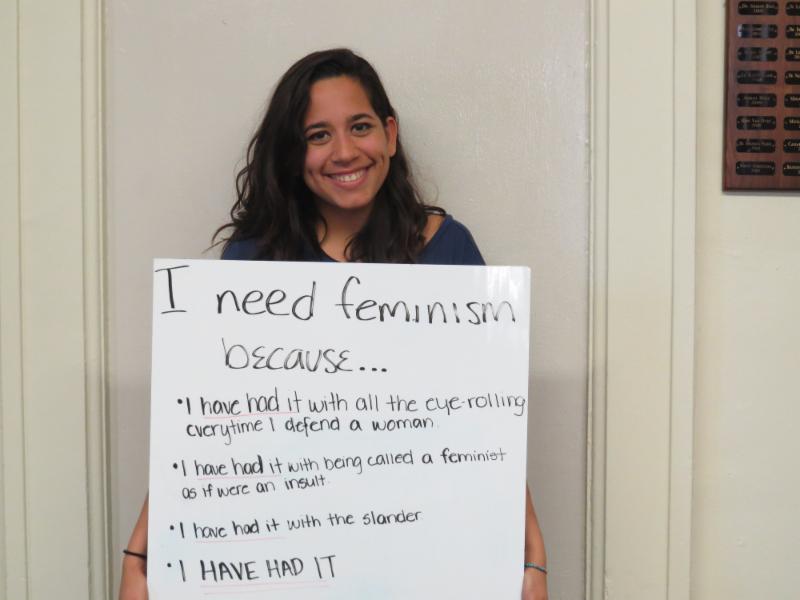 I need feminism
because...
•I have had it with all the eye-rolling
everytime I defend a woman.
•I have had it with being called a feminist
as if were an insult.
•I have had it with the slander.
•I HAVE HAD IT